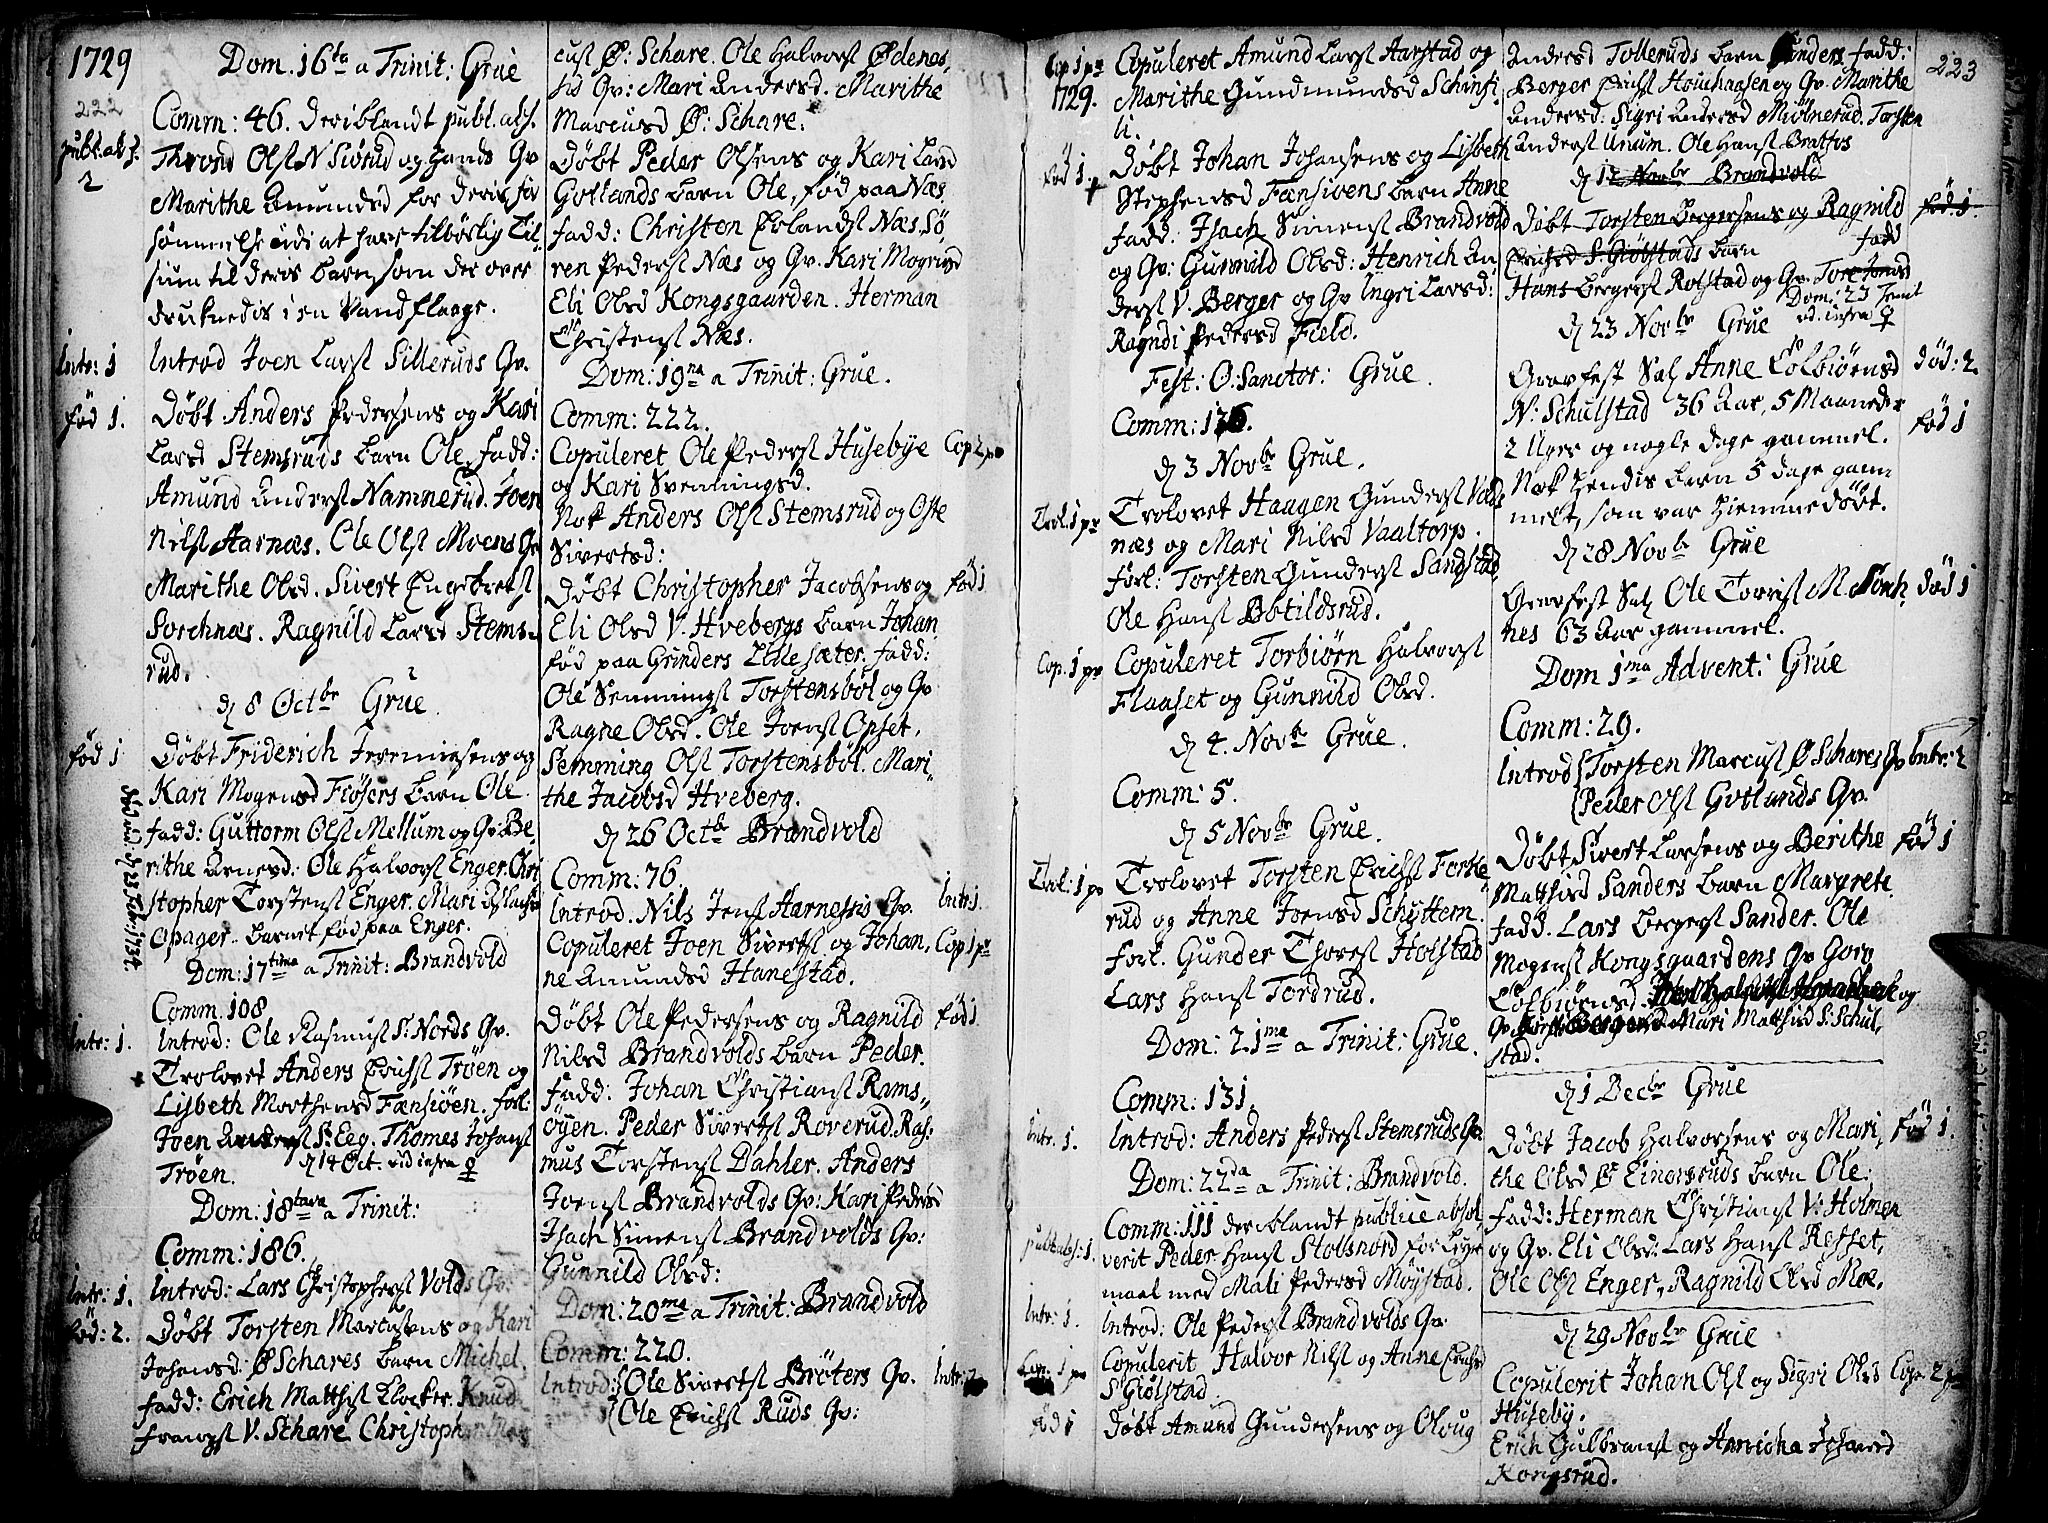 1729
222
Dom. 16ta a Trinit: Grue
Comm: 46. deriblandt publ. abs.
publ. abs:
2
Thrond Ols N Siørud og hands Qv
Marithe Amundsd for deris for
sømmelse udi at have tilbørlig Til
siun til deris barn, som der over
druknedis i en Vandflaage.
Intr: 1
Introd Joen Lars Silleruds Qv.
fød 1.
Døbt Anders Pedersens og Kari
Larsd Stemsruds barn Ole, fadd:
Amund Anders Namnerud. Joen
Nils Aarnæs. Ole Ols Moens Qv
Marithe Olsd. Sivert Engebrets
Sorchnæs. Ragnild Larsd Stems-
rud.
d 8 Octbr Grue
fød 1
Døbt Friderich Jeremiesens og
Kari Mogensd Fiøsers barn Ole
fadd: Guttorm Ols Mellum og Qv: Be
rithe Arnesd: Ole Halvors Enger. Chri
stopher Torstens Enger. Mari
Opager. barnet fød paa Enger.
Dom: 17tima a Trinit: Brandvold
Comm: 108
Intr: 1.
Introd: Ole Rasmus S. Nords Qv.
Trolovet Anders Erichs Trøen og
Lisbeth Morthensd Fænsiøen. forl:
Joen Anders S. Eeg. Thomes Johans
Trøen. d 14 Oct. vid infra
Dom: 18tava a Trinit:
Comm: 186.
Intr: 1.
Introd: Lars Christophers Volds Qv:
fød: 2.
Døbt Torsten Marcusens og Kari
Johansd: Ø Schares barn Michel.
fadd: Erich Matthis Klocker. Knud
Frangs V. Schare Christopher
cus Ø: Schare. Ole Halvors Ødenæs,
sis Qv: Mari Andersd. Marithe
Marcusd Ø: Schare.
Døbt Peder Olsens og Kari Larsd
Gotlands barn Ole, fød paa Næs
fadd: Christen Erlands Næs. Sø,
ren Peders Næs og Qv. Kari Mogensd
Eli Olsd Kongsgaarden. Herman
Christens Næs.
Dom: 19na a Trinit: Grue.
Comm: 222.
Copuleret Ole Peders Husebye
Cop 2 pr
og Kari Svenningsd.
Nok Anders Ols Stemsrud og Oste
Sivertsd:
Døbt Christopher Jacobsens og
fød 1
Eli Olsd V. Hvebergs barn Johan
fød paa Grinders Lille sæter. fadd:
Ole Semmings Torstensbøl og Qv
Ragne Olsd. Ole Joens Opset.
Semming Ols Torstensbøl. Mari,
the Jacobsd Hveberg.
d 26 Octbr Brandvold
Comm: 76
Introd. Nils Jens Aarnessis Qv.
Intr: 1.
Copuleret Joen Siverts og Johan,
Cop 1 pr
ne Amundsd Hanestad.
Døbt Ole Pedersens og Ragnild
fød 1
Nilsd Brandvolds barn Peder.
fadd: Johan Christians Rams,,
øyen. Peder Siverts Roverud. Ras:
mus Torstens Dahler. Anders
Joens Brandvolds Qv: Kari Pedersd
Isach Simens Brandvolds Qv:
Gunnild Olsd:
Dom: 20ma a Trinit: Brandvold
Comm: 220.
Introd: Ole Siverts Brøters Qv.
Intr: 2
Ole Erichs Ruds Qv:
Cop 1 pr
1729.
Copuleret Amund Lars Aarstad og
Marithe Gundmundsd Schinsi
li.
fød 1
Døbt Johan Johansens og Lisbeth
Stephensd Fænsiøens barn Anne
fadd: Isach Simens Brandvold
og Qv: Gunnild Olsd: Henrich An
ders V. Berger og Qv Ingri Larsd:
Ragndi Pedersd Field.
Fest: O. Sanctor: Grue.
Comm: 136.
d 3 Novbr Grue.
Trol. 1 pr
Trolovet Haagen Gunders Volds
næs og Mari Nilsd Vaaltorp.
forl: Torsten Gunders Sandstad
Ole Hans Bbtildsrud.
Cop. 1 pr
Copuleret Torbiørn Halvors
Flaaset og Gunnild Olsd.
d 4. Novbr Grue.
Comm: 5.
d 5 Novbr Grue.
Trol: 1 pr
Trolovet Torsten Erichs Forke
rud og Anne Joensd Schyttern
forl. Gunder Thores Holstad
Lars Hans Tordrud.
Dom: 21ma a Trinit: Grue.
Comm: 131.
Intr. 1.
Introd: Anders Peders Stemsruds Qv
Dom: 22da a Trinit: Brandvold.
Comm: 111 deriblandt publice absol
publ abs: 1.
verit Peder Hans Stolsnord for Leyer
maal med Mali Pedersd Møystad.
Intr: 1
Introd: Ole Peders Brandvolds Qv.
Cop: 1 pr
Copulerit Halvor Nils og Anne Erichsd
S Giølstad.
fød 1
Døbt Amund Gundersens og Oloug
223
Andersd Tolleruds barn Anders fadd:
Berger Erichs Houchaasen og Qv. Marithe
Andersd: Sigri Andersd Miølnerud. Torsten
Anders Unum. Ole Hans Bratfos
d 12 Novbr Brandvold
Døbt Torsten Bergersens og Ragnild
fød. 1.
Erichsd S: Giølstads barn fadd
Hans Bergers Rotstad og Qv. Tore Jonsd
Dom: 23 Trinit
vid. infra
d 23 Novbr Grue
Gravfest Sal Anne Colbiørnsd
død: 2
N: Schulstad 36 Aar, 5 Maaneder
fød 1
2 Uger og nogle dage gammel.
Nok hendis barn 5 dage gam
melt, som var hiemmedøbt.
d 28 Novbr Grue
Gravfest Sal Ole Torris M. Sorch,
død 1
nes 63 Aar gammel.
Dom 1ma Advent: Grue
Comm: 29.
Introd Torsten Marcus Ø Schares Qv
Intr: 2
Peder Ols Gotlands Qv.
Døbt Sivert Larsens og Berithe
fød 1
Matthisd Sanders barn Margrete
fadd. Lars Bergers Sander. Ole
Mogens Kongsgaardens Qv Goro
Colbiørnsd. og
Qv. Mari Matthisd S: Schul,
stad.
d 1 Decbr Grue
Døbt Jacob Halvorsens og Mari,
fød 1.
the Olsd Ø Einersruds barn Ole:
fadd: Herman Christians V: Holmen
og Qv. Eli Olsd: Lars Hans Refset,
Ole Ols Enger, Ragnild Olsd Moe.
d 29 Novbr Grue
Copulerit Johan Ols og Sigri Olsd
Cop 2 pr
Huseby.
Erich Gulbrans og Annicha Johansd
Kongsrud.